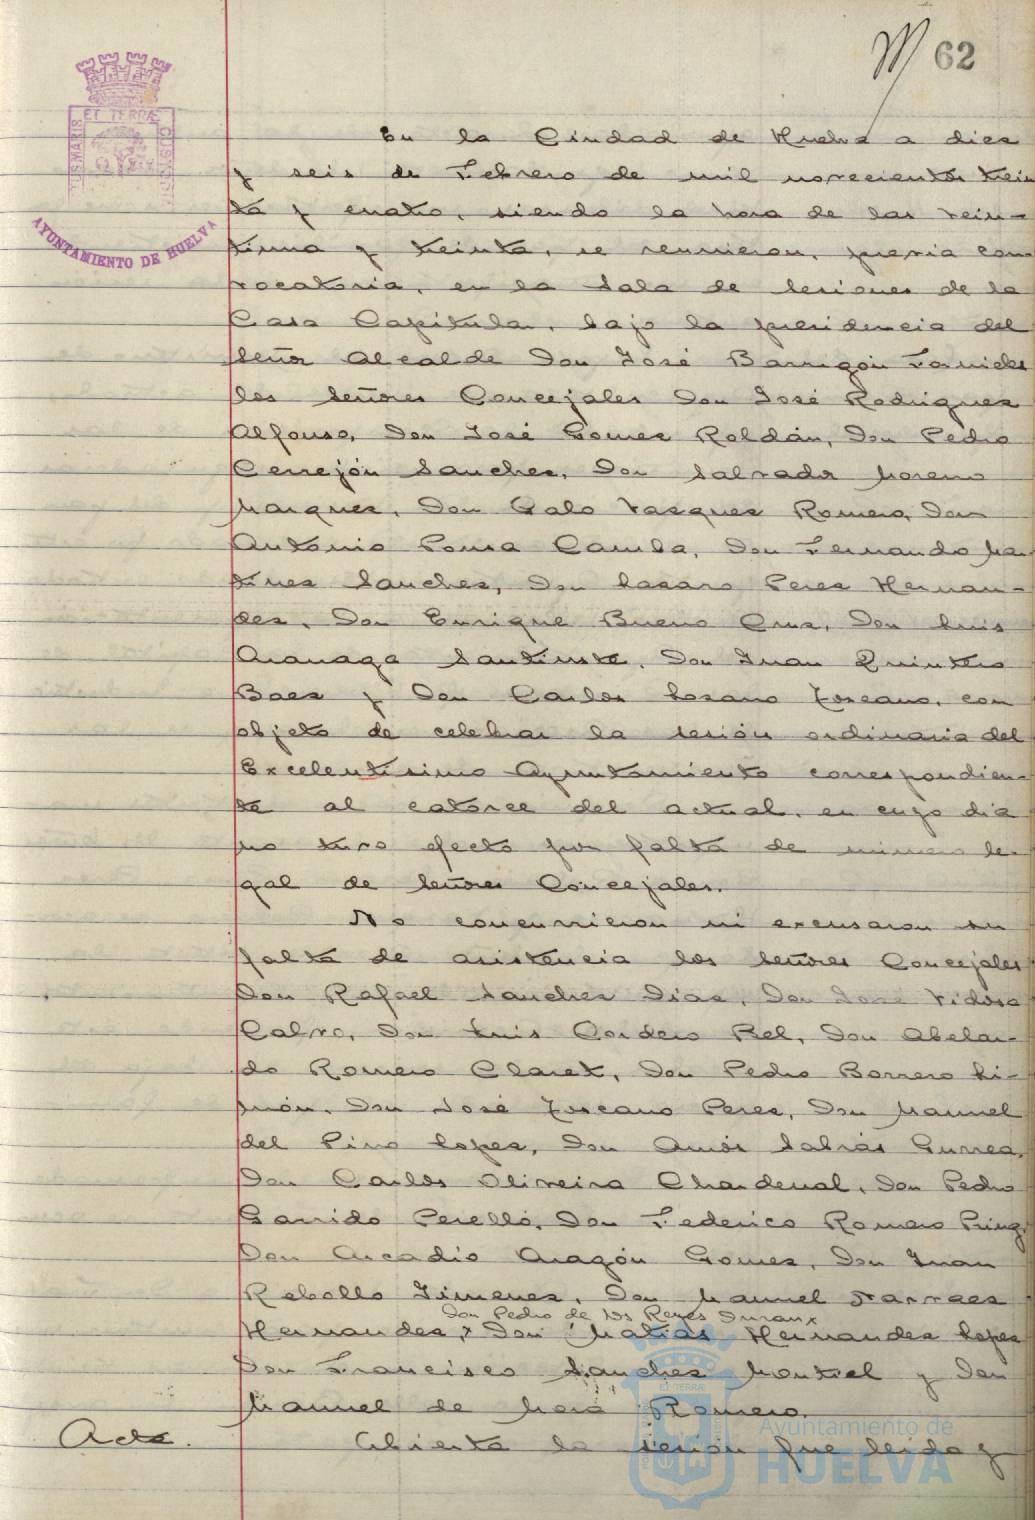 62
ET TERRÆ
AYUNTAMIENTO DE HUELVA
En la Ciudad de Huelva a diez
y seis de Febrero de mil novecientos trein
ta y cuatro, siendo la hora de las vein-
tiuna y treinta, se reunieron, previa con
vocatoria, en la Sala de Sesiones de la
Casa Capitular, bajo la presidencia del
Señor Alcalde Don José Barrigón Fornieles
los Señores Concejales Don José Rodriguez
Alfonso, Don José Gomez Roldán, Don Pedro
Cerrejón Sanchez, Don Salvador Moreno
Marquez, Don Galo Vazquez Romero, Don
Antonio Pousa Camba, Don Fernando Mar
tinez Sanchez, Don Lazaro Perez Hernan-
dez, Don Enrique Bueno Cruz, Don Luis
Aranaga Santiuste, Don Juan Quintero
Baez y Don Carlos Lozano Toscano, con
objeto de celebrar la sesión ordinaria del
Excelentisimo Ayuntamiento correspondien-
te al catorce del actual, en cuyo dia
no tuvo efecto por falta de número le-
gal de Señores Concejales.
No concurrieron ni excusaron su
falta de asistencia los Señores Concejales
Don Rafael Sanchez Diaz, Don José Vidosa
Calvo, Don Luis Cordero Bel, Don Abelar-
do Romero Claret, Don Pedro Borrero Li-
món, Don José Toscano Perez, Don Manuel
del Pino Lopez, Don Amós Sabrás Gurrea,
Don Carlos Oliveira Chardenal, Don Pedro
Garrido Perelló, Don Federico Romero
Don Arcadio Aragón Gomez, Don Juan
Rebollo Jimenez, Don Manuel Narvaez
Don Pedro de los Reyes
Hernandez, Don Matias Hernandez Lopez
Don Francisco Sanchez Montiel y Don
Manuel de Mora Romero.
Acta.
Abierta la sesión fue leida y
Ayuntamiento de
HUELVA